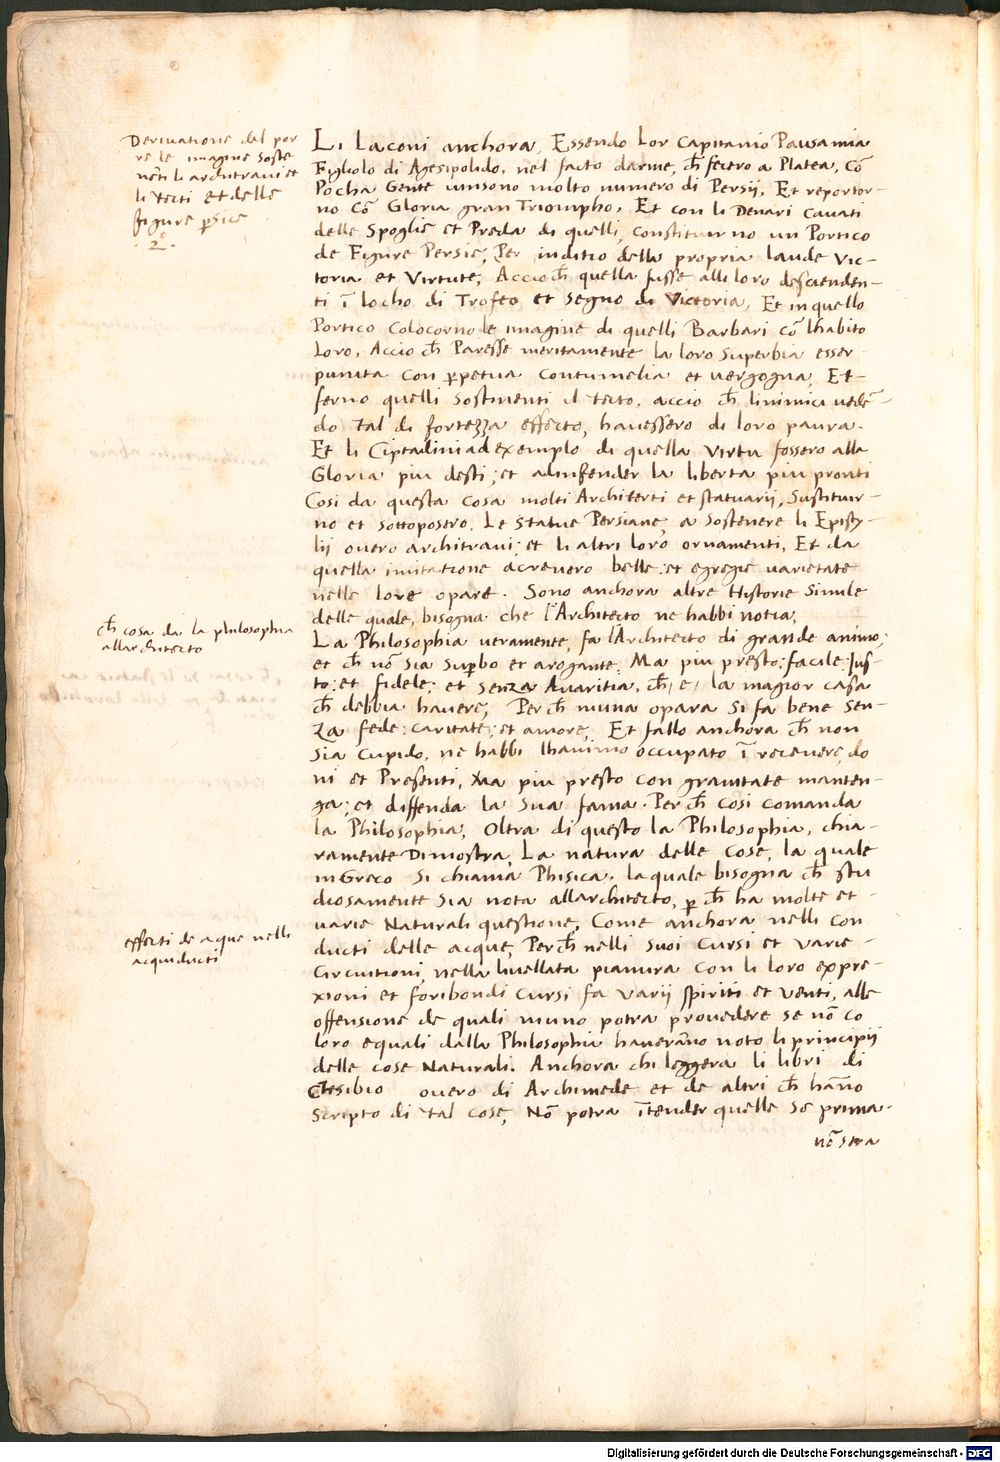 Derivatione del por
re le imagine soste
nēti li architravi et
li tecti et delle
figure ꝑsice
.2.
Li Laconi anchora, Essendo Lor Capitanio Pausania
Figliolo di Agesipolido, nel facto darme, ch̄ fecero a Platea, Cō
Pocha Gente vinsono molto numero di Persii, Et reportor-
no Cō Gloria gran Triompho, Et con li Denari Cavati
delle Spoglie et Preda di quelli, Constituirno un Portico
de Figure Persie, Per inditio della propria laude Vic-
toria et Virtute, Accioch̄ quella fusse alli loro descienden-
ti ī locho di Trofeo et Segno di Victoria, Et in quello
Portico Colocorno le imagine di quelli Barbari cō lhabito
Loro, Accio ch̄ Paresse meritamente la loro Superbia esser
punita con ꝑpetua Contumelia et vergogna, Et
ferno quelli Sostinenti il tecto, accio ch̄ linimici vedē-
do tal di fortezza effecto, havessero di loro paura.
Et li Ciptadini ad exemplo di quella virtu fossero alla
Gloria piu desti; et adiffender la liberta piu pronti
Cosi da questa cosa molti Architecti et statuarii, Sustituir-
no et sottoposero, Le Statue Persiane, a Sostenere li Episty-
lii overo architravi; et li altri loro ornamenti, Et da
quella imitatione acrevero belle: et egregie varietate
nelle lore opare. Sono anchora altre Historie Simile
delle quale, bisogna che l'Architecto ne habbi notia,
ch̄ cosa da la philosophia
allarchitecto
La Philosophia veramente, fa l'Architecto di grande animo;
et ch̄ nō Sia Suꝑbo et arogante: Ma piu presto: facile: Jus-
to: et fidele: et Senza Avaritia, ch̄ e, la magior casa
ch̄ debbia havere, Per ch̄ niuna opara Si fa bene Sen-
Za fede: caritate: et amore, Et fallo anchora ch̄ non
Sia Cupido, ne habbi lhanimo occupato ī recevere, do
ni et Presenti, Ma piu presto con gravitate manten-
ga; et diffenda la Sua fama. Per ch̄ cosi comanda
la Philosophia, Oltra di questo la Philosophia, chia-
ramente Dimostra, La natura delle Cose, la quale
in Greco Si chiama Phisica. la quale bisogna ch̄ stu
diosamente Sia nota allarchitecto, ꝑ ch̄ ha molte et
varie Naturali questione, Come anchora nelli con
effecti de aque nelli
acquiducti
ducti delle acque, Perch̄ nelli Suoi Cursi et varie
Circuitioni, nella livellata pianura con li loro expre-
xioni et foribondi Cursi fa varii spiriti et venti, alle
offensione de quali niuno potra provedere se nō co
loro equali dalla Philosophia haverāno noto li principii
delle cose Naturali. Anchora chi leggera li libri di
Ctesibio overo di Archimede et de altri ch̄ hāno
Scripto di tal cose, Nō potra ītender quelle Se prima
nō sera
Digitalisierung gefördert durch die Deutsche Forschungsgemeinschaft - DFG